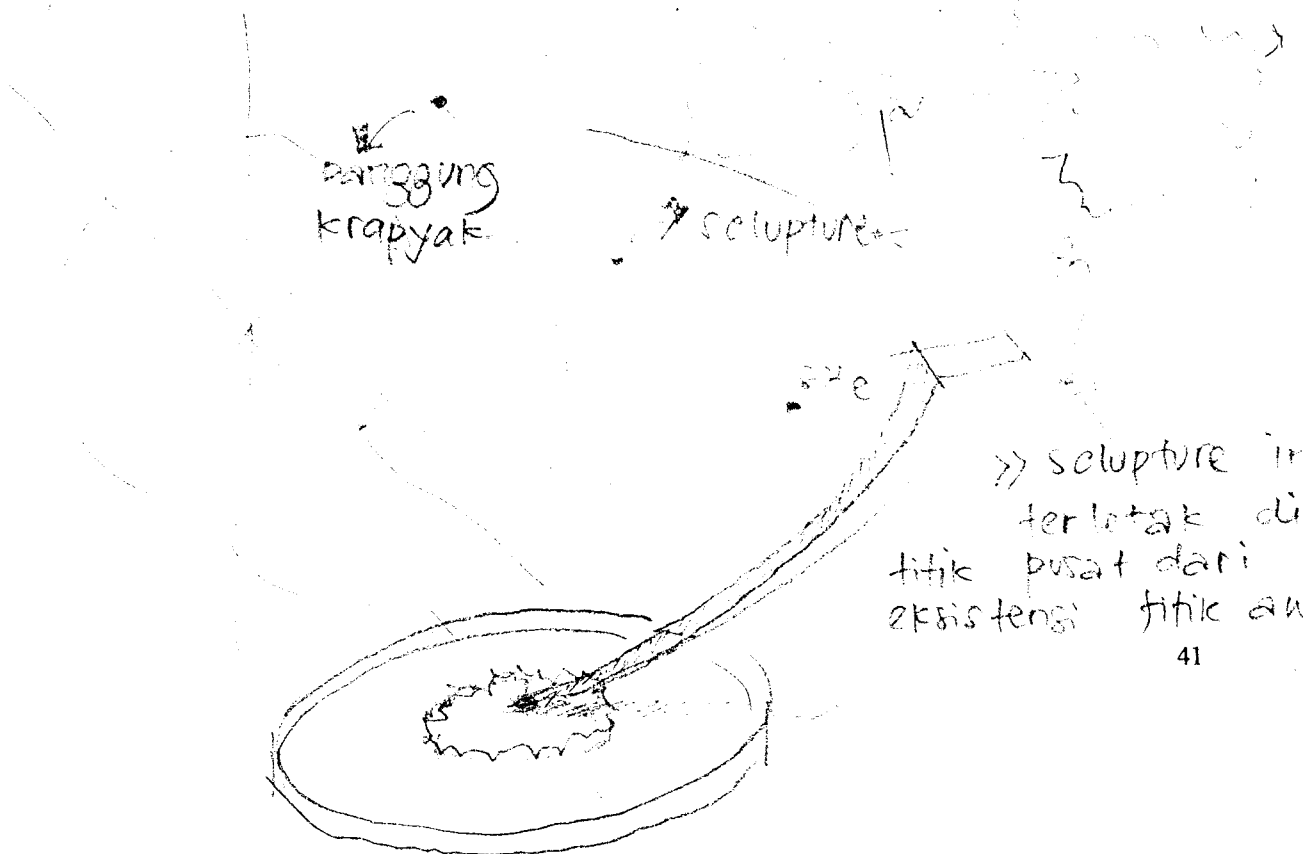 panggung
krapyak
sclupture
>> sclupture in
terletak di
titik pusat dari
eksistensi titik aw
41